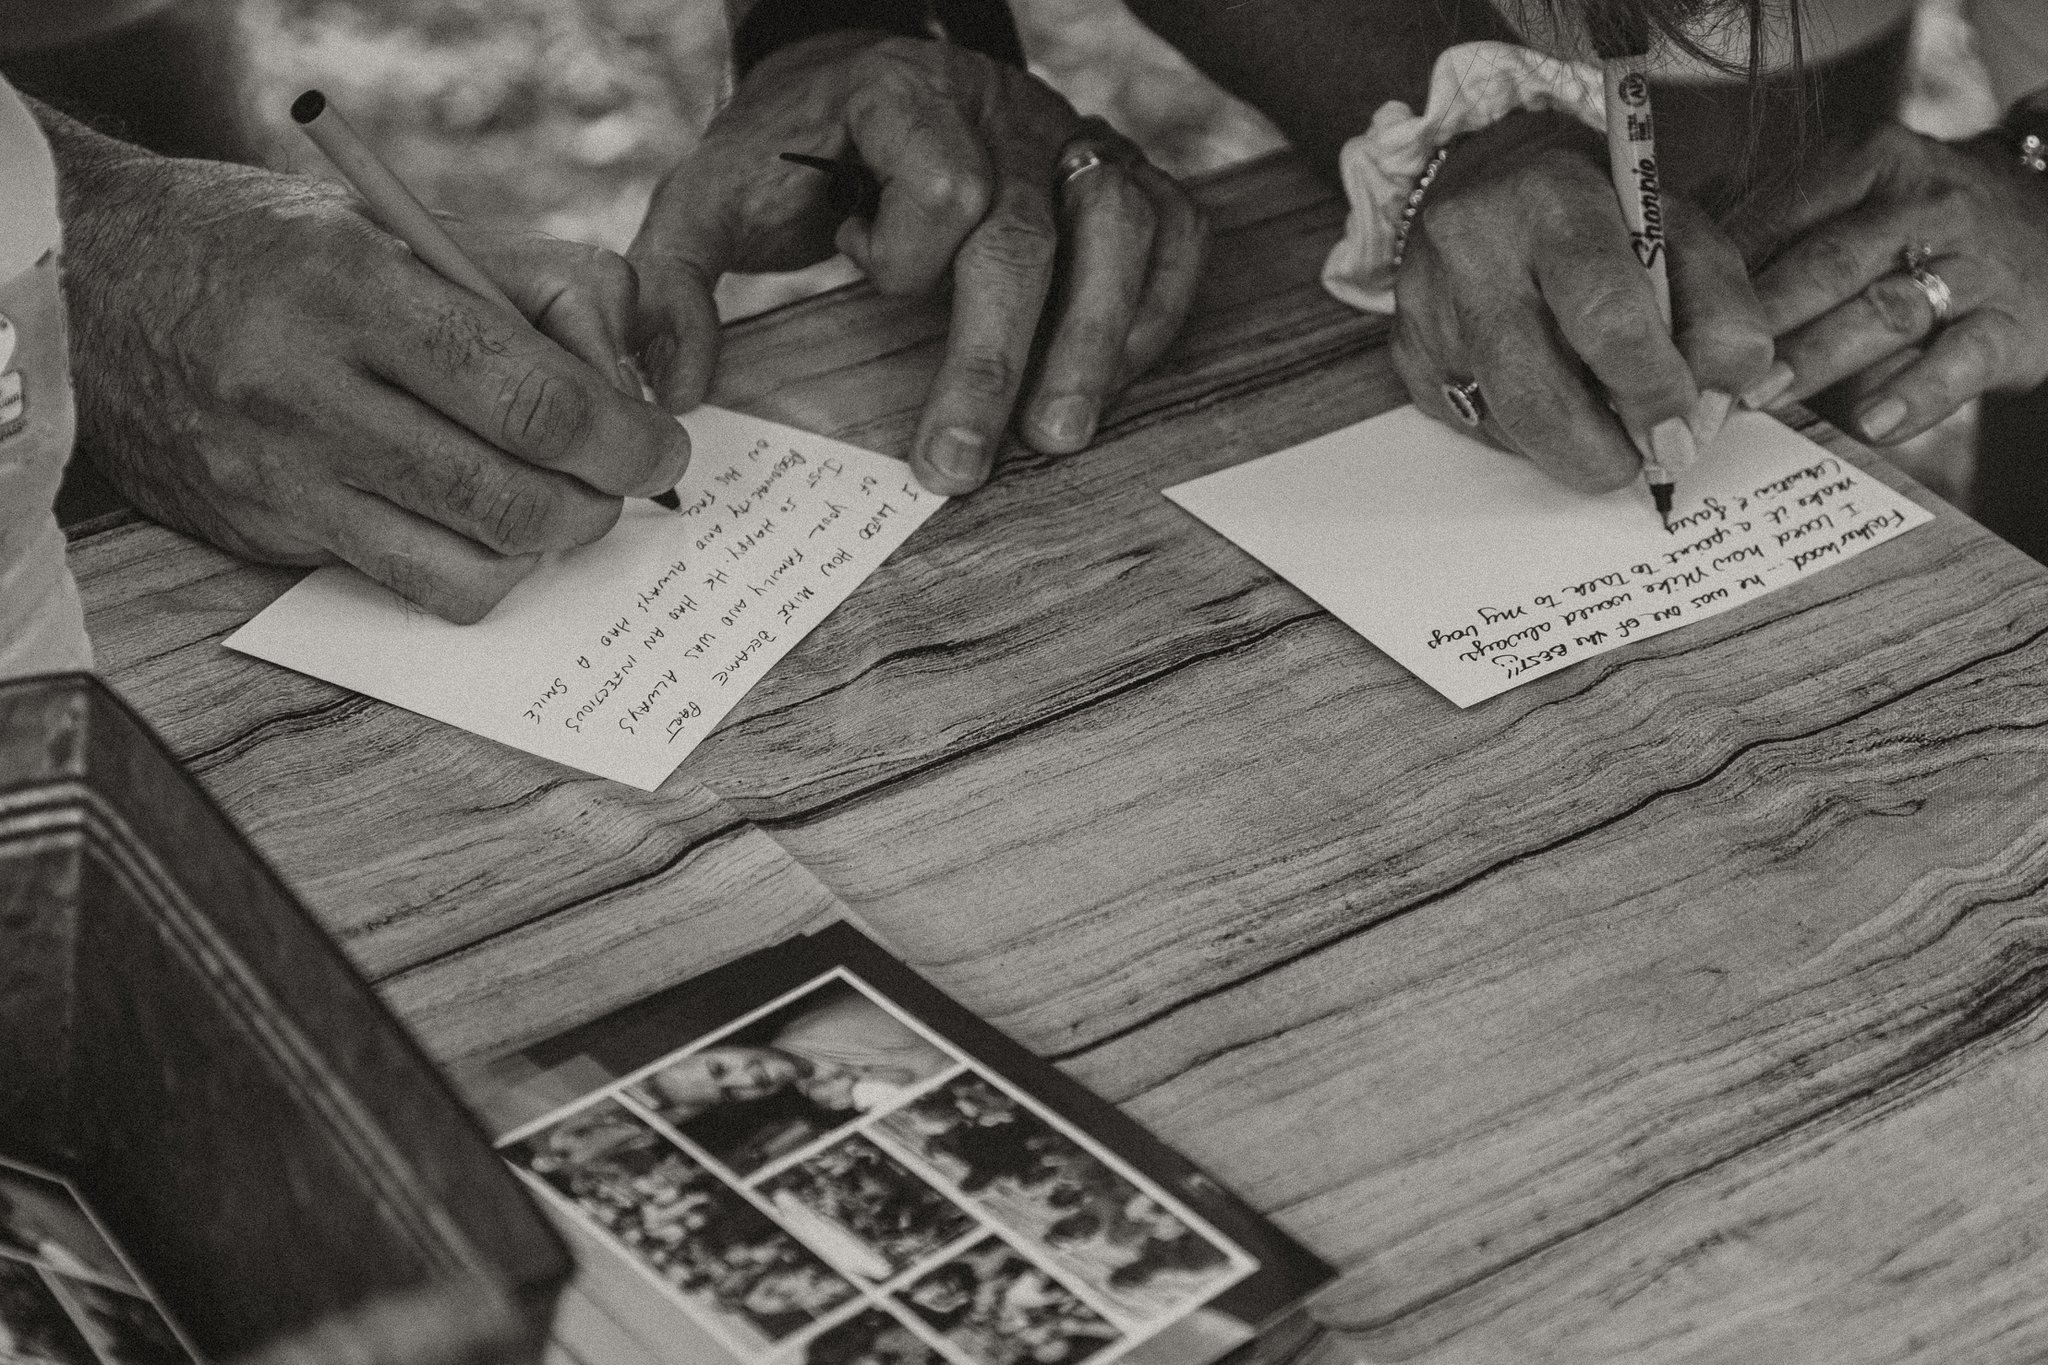 I LOVED HOW MIKE BECAME PART
OF YOUR FAMILY AND WAS ALWAYS
JUST SO HAPPY. HE HAD AN INFECTIOUS
PERSONALITY AND ALWAYS HAD A SMILE
ON HIS FACE
Fatherhood... he was one of the BEST!!
I loved how Mike would always
make it a point to talk to my boys
Christian & Jared
Sharpie